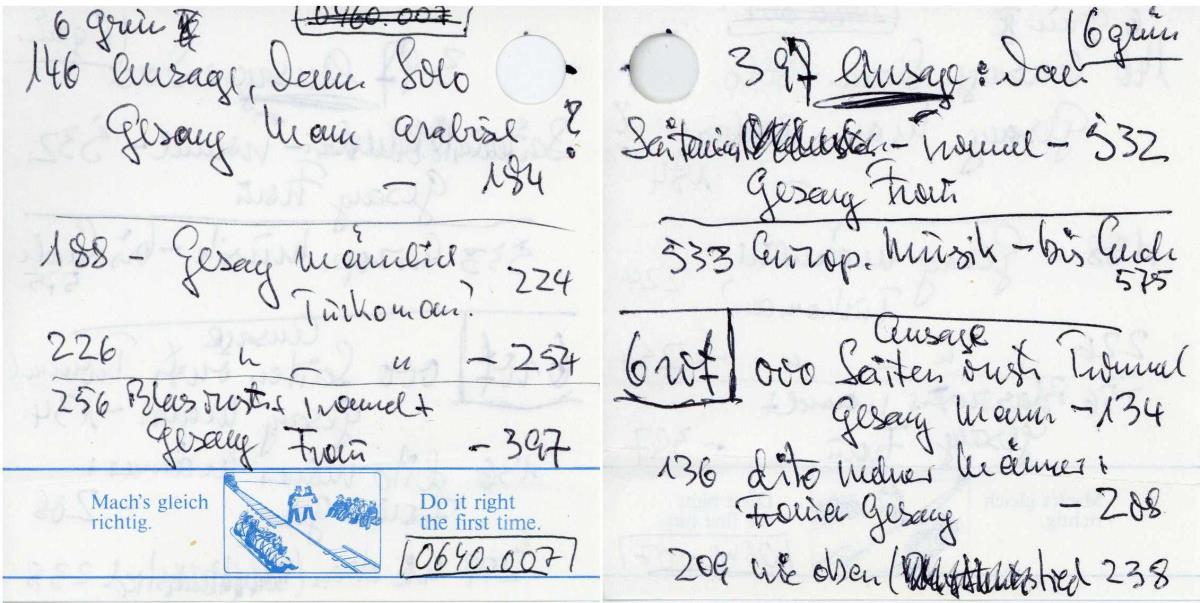 6 grün
0460.007
146 Ansage, dann Solo
Gesang Mann arabisc ?
– 184
188 – Gesang männlic
224
Turkoman?
226 " " – 254
256 Blasinstr. Tromel +
Gesang Frau – 397
Mach's gleich
richtig.
Do it right
the first time.
0640.007
6 grün
397 Ansage: dan
Saiten – Tromel – 532
Gesang Frau
533 Europ. Musik – bis Ende
575
Ansage
6 rot 000 Saiten instr Trommel
Gesang Mann – 134
136 dito mehrer Männer +
Frauen Gesang – 208
209 wie oben ( lied 238